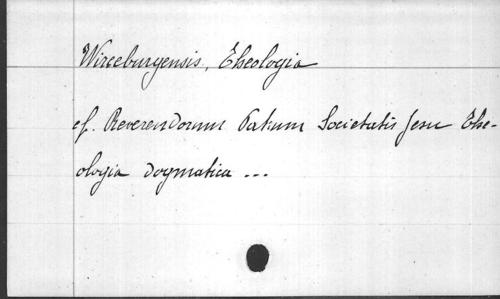 Wirceburgensis, Theologia
cf. Reverendorum Patrum Societatis Jesu The-
ologia dogmatica ...